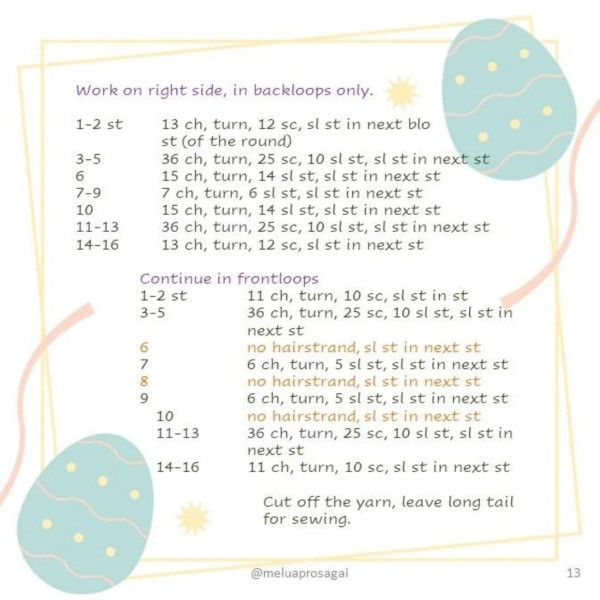 Work on right side, in backloops only.
1-2 st 13 ch, turn, 12 sc, sl st in next blo
st (of the round)
3-5 36 ch, turn, 25 sc, 10 sl st, sl st in next st
6 15 ch, turn, 14 sl st, sl st in next st
7-9 7 ch, turn, 6 sl st, sl st in next st
10 15 ch, turn, 14 sl st, sl st in next st
11-13 36 ch, turn, 25 sc, 10 sl st, sl st in next st
14-16 13 ch, turn, 12 sc, sl st in next st
Continue in frontloops
1-2 st 11 ch, turn, 10 sc, sl st in st
3-5 36 ch, turn, 25 sc, 10 sl st, sl st in
next st
6 no hairstrand, sl st in next st
7 6 ch, turn, 5 sl st, sl st in next st
8 no hairstrand, sl st in next st
9 6 ch, turn, 5 sl st, sl st in next st
10 no hairstrand, sl st in next st
11-13 36 ch, turn, 25 sc, 10 sl st, sl st in
next st
14-16 11 ch, turn, 10 sc, sl st in next st
Cut off the yarn, leave long tail
for sewing.
@meluaprosagai 13